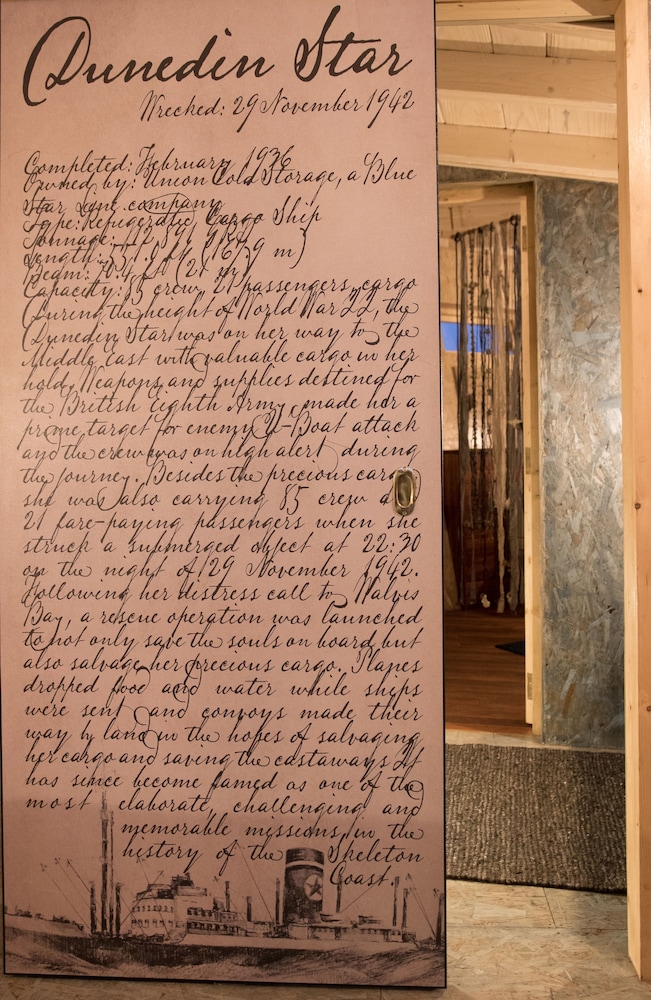 Dunedin Star
Wrecked: 29 November 1942
Completed: February 1936
Owned by: Union Cold Storage, a Blue
Star Line company
Type: Refrigerated Cargo Ship
Tonnage:
Length: 531.0 ft (161.9 m)
Beam: 70.4 ft (21 m)
Capacity: 85 crew, 21 passengers, cargo
During the height of World War 22, the
Dunedin Star was on her way to the
Middle East with valuable cargo in her
hold. Weapons and supplies destined for
the British Eighth Army, made her a
prime target for enemy U-Boat attack
and the crew was on high alert during
the journey. Besides the precious cargo
she was also carrying 85 crew
21 fare-paying passengers when she
struck a submerged object at 22:30
on the night of 29 November 1942.
Following her distress call to Walvis
Bay, a rescue operation was launched
to not only save the souls on board but
also salvage her precious cargo. Planes
dropped food and water while ships
were sent and convoys made their
way by land in the hopes of salvaging
her cargo and saving the castaways. It
has since become famed as one of the
most elaborate, challenging and
memorable missions in the
history of the Skeleton
Coast.